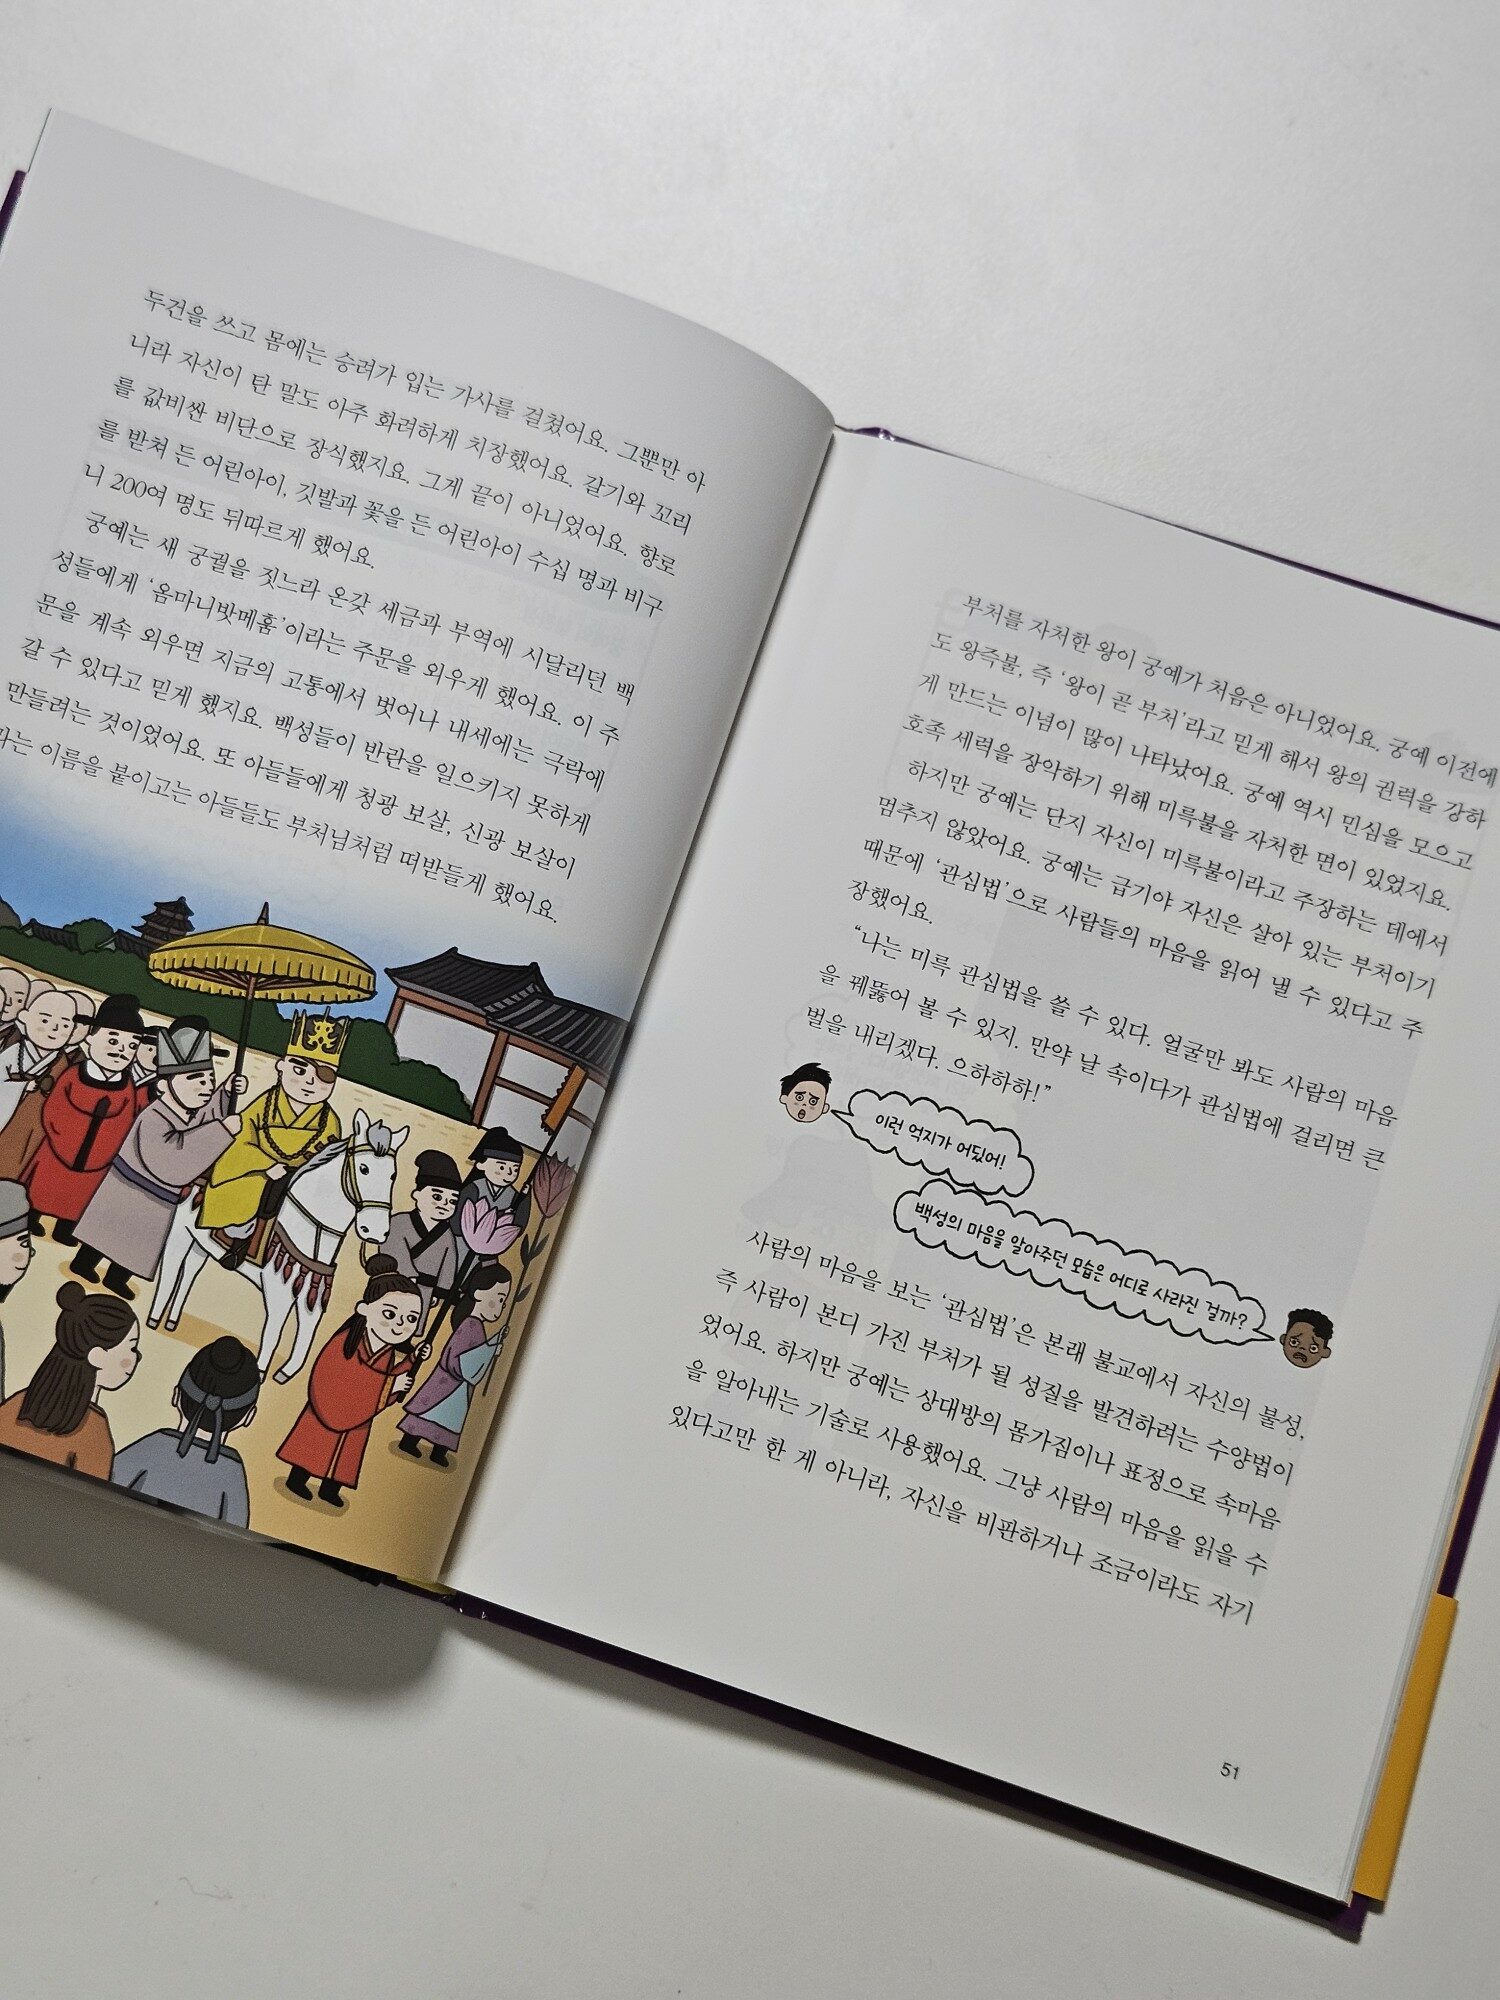 두건을 쓰고 몸에는 승려가 입는 가사를 걸쳤어요. 그뿐만 아
니라 자신이 탄 말도 아주 화려하게 치장했어요. 갈기와 꼬리
를 값비싼 비단으로 장식했지요. 그게 끝이 아니었어요. 향로
를 받쳐 든 어린아이, 깃발과 꽃을 든 어린아이 수십 명과 비구
니 200여 명도 뒤따르게 했어요.
궁예는 새 궁궐을 짓느라 온갖 세금과 부역에 시달리던 백
성들에게 ‘옴마니밧메훔’이라는 주문을 외우게 했어요. 이 주
문을 계속 외우면 지금의 고통에서 벗어나 내세에는 극락에
갈 수 있다고 믿게 했지요. 백성들이 반란을 일으키지 못하게
만들려는 것이었어요. 또 아들들에게 청광 보살, 신광 보살이
라는 이름을 붙이고는 아들들도 부처님처럼 떠받들게 했어요.
부처를 자처한 왕이 궁예가 처음은 아니었어요. 궁예 이전에
도 왕즉불, 즉 ‘왕이 곧 부처’라고 믿게 해서 왕의 권력을 강하
게 만드는 이념이 많이 나타났어요. 궁예 역시 민심을 모으고
호족 세력을 장악하기 위해 미륵불을 자처한 면이 있었지요.
하지만 궁예는 단지 자신이 미륵불이라고 주장하는 데에서
멈추지 않았어요. 궁예는 급기야 자신은 살아 있는 부처이기
때문에 ‘관심법’으로 사람들의 마음을 읽어 낼 수 있다고 주
장했어요.
“나는 미륵 관심법을 쓸 수 있다. 얼굴만 봐도 사람의 마음
을 꿰뚫어 볼 수 있지. 만약 날 속이다가 관심법에 걸리면 큰
벌을 내리겠다. 으하하하!”
이런 억지가 어딨어!
백성의 마음을 알아주던 모습은 어디로 사라진 걸까?
사람의 마음을 보는 ‘관심법’은 본래 불교에서 자신의 불성,
즉 사람이 본디 가진 부처가 될 성질을 발견하려는 수양법이
었어요. 하지만 궁예는 상대방의 몸가짐이나 표정으로 속마음
을 알아내는 기술로 사용했어요. 그냥 사람의 마음을 읽을 수
있다고만 한 게 아니라, 자신을 비판하거나 조금이라도 자기
51